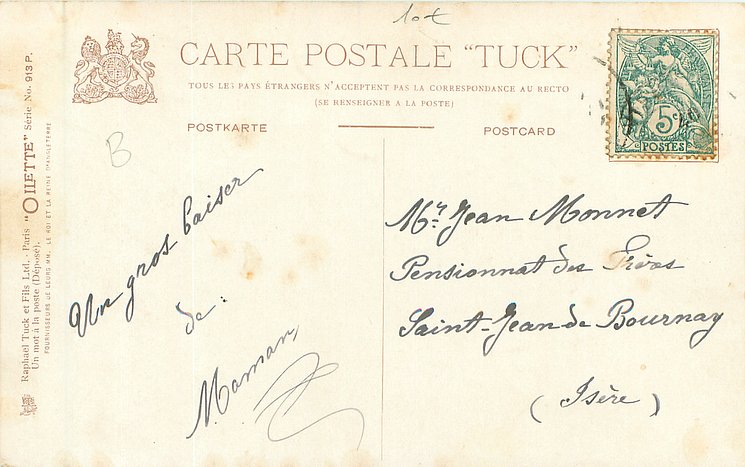 10€
CARTE POSTALE "TUCK"
TOUS LES PAYS ÉTRANGERS N'ACCEPTENT PAS LA CORRESPONDANCE AU RECTO
(SE RENSEIGNER A LA POSTE)
POSTKARTE
POSTCARD
5c
POSTES
B
Un gros baiser
de:
Maman
Mr. Jean Monnet
Pensionnat des Frères
Saint-Jean de Bournay
(Isère)
Raphael Tuck et Fils Ltd. - Paris "OILETTE" Série No. 913 P.
Un mot à la poste (Déposé).
FOURNISSEURS DE LEURS MM. LE ROI ET LA REINE D'ANGLETERRE